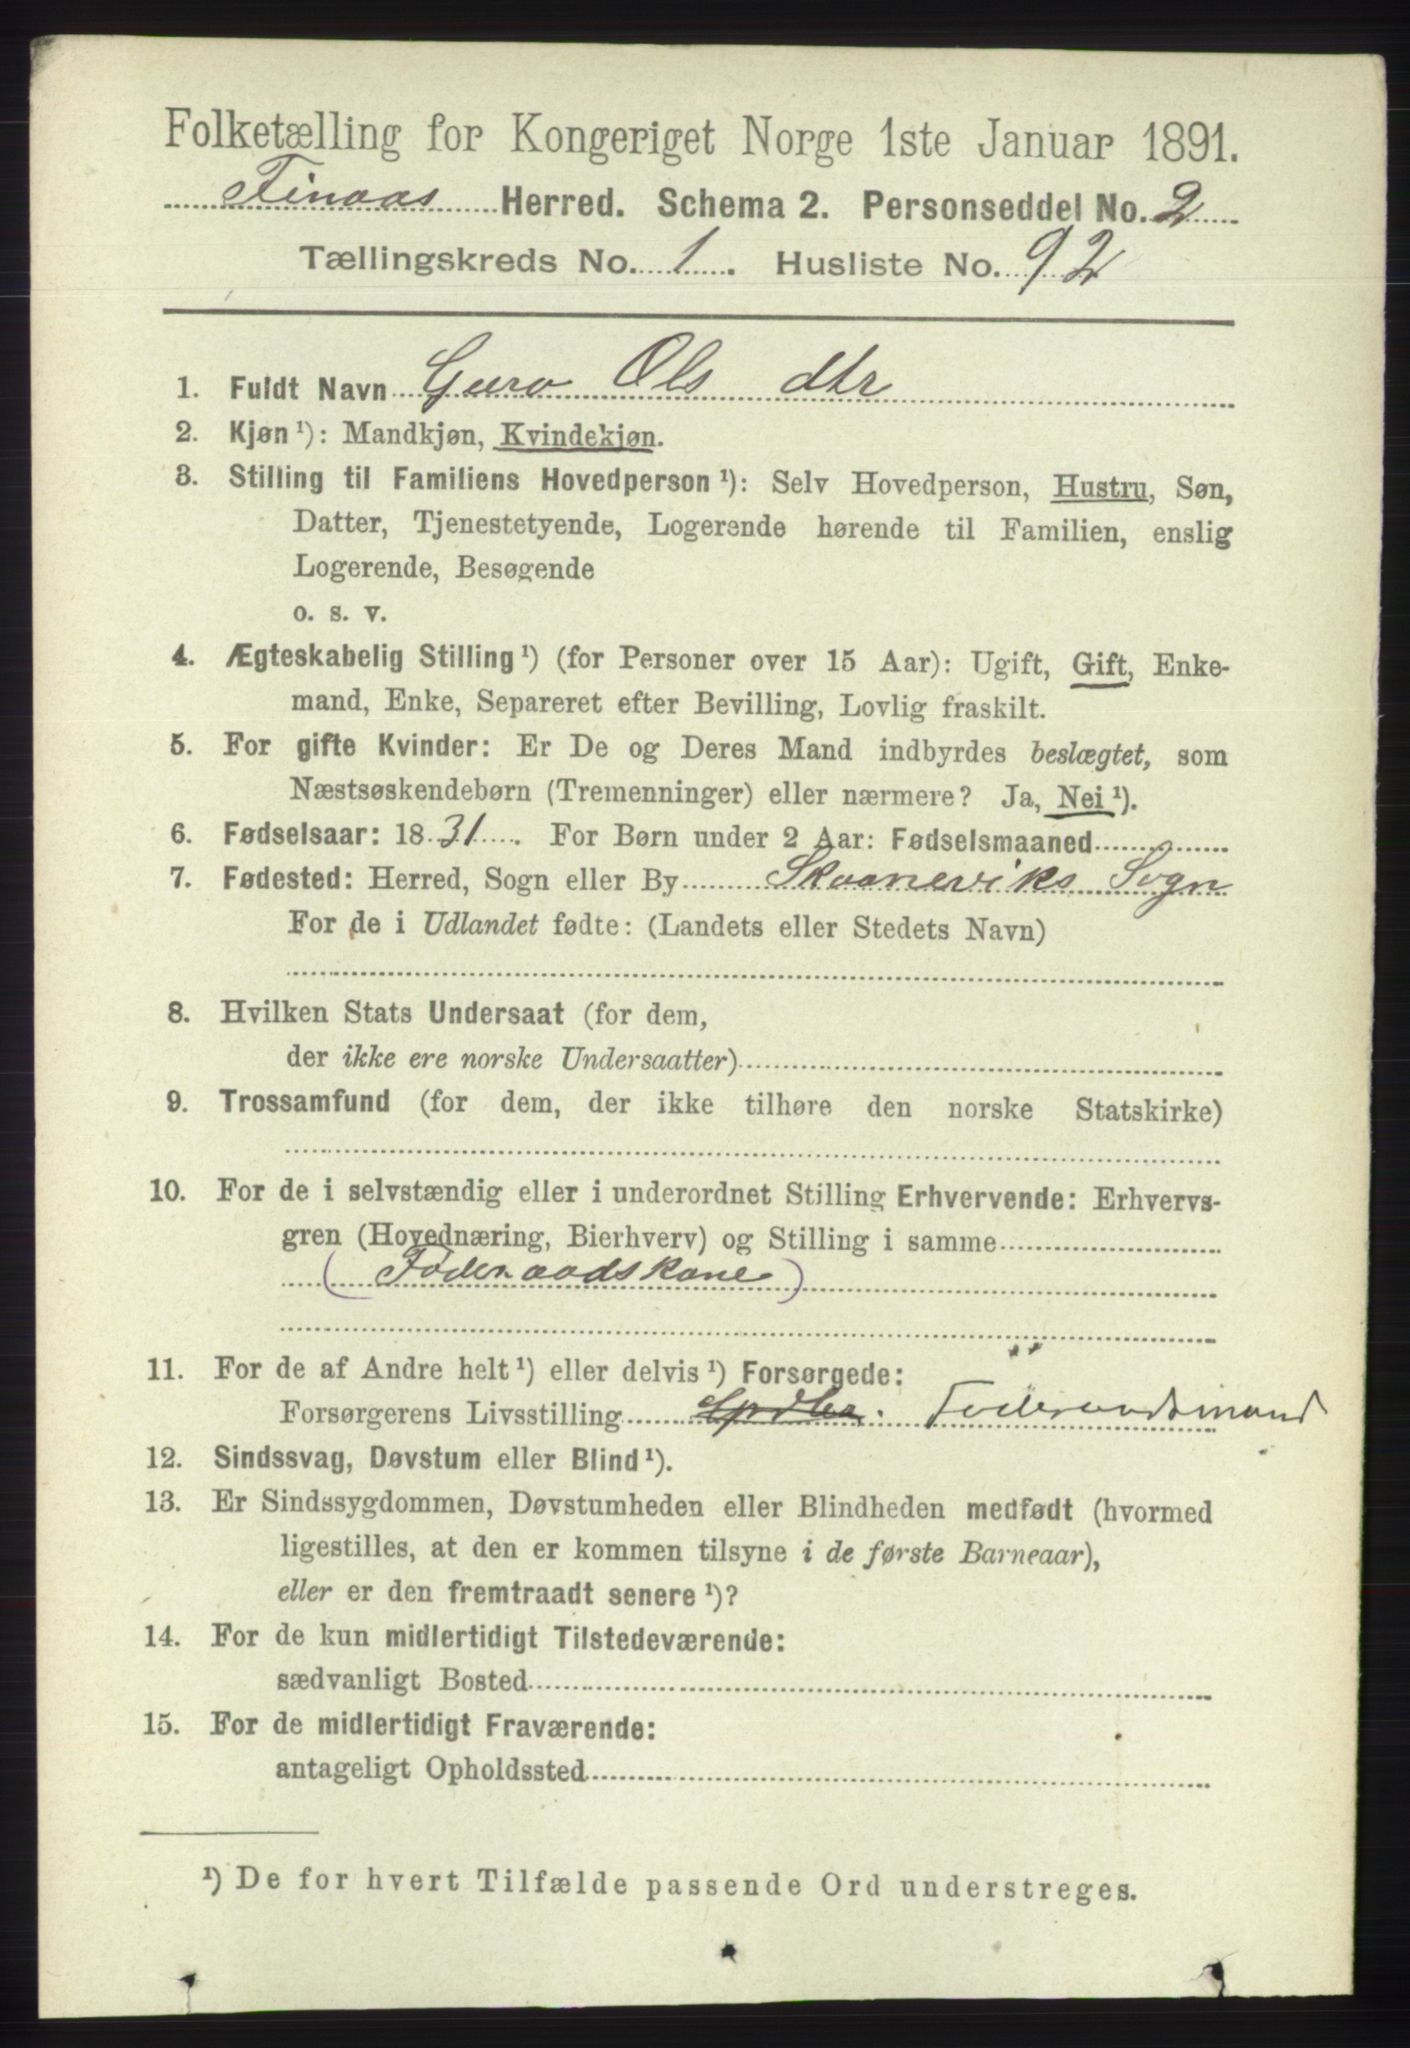 Folketælling for Kongeriget Norge 1ste Januar 1891.
Finaas Herred. Schema 2. Personseddel No. 2
Tællingskreds No. 1. Husliste No. 92
1. Fuldt Navn Guro Ols dtr
2. Kjøn ¹): Mandkjøn, Kvindekjøn.
3. Stilling til Familiens Hovedperson ¹): Selv Hovedperson, Hustru, Søn,
Datter, Tjenestetyende, Logerende hørende til Familien, enslig
Logerende, Besøgende
o. s. v.
4. Ægteskabelig Stilling ¹) (for Personer over 15 Aar): Ugift, Gift, Enke-
mand, Enke, Separeret efter Bevilling, Lovlig fraskilt.
5. For gifte Kvinder: Er De og Deres Mand indbyrdes beslægtet, som
Næstsøskendebørn (Tremenninger) eller nærmere? Ja, Nei ¹).
6. Fødselsaar: 1831. For Børn under 2 Aar: Fødselsmaaned
7. Fødested: Herred, Sogn eller By Skaaneviks Sogn
For de i Udlandet fødte: (Landets eller Stedets Navn)
8. Hvilken Stats Undersaat (for dem,
der ikke ere norske Undersaatter)
9. Trossamfund (for dem, der ikke tilhøre den norske Statskirke)
10. For de i selvstændig eller i underordnet Stilling Erhvervende: Erhvervs-
gren (Hovednæring, Bierhverv) og Stilling i samme
(Foderaadskone)
11. For de af Andre helt ¹) eller delvis ¹) Forsørgede:
Forsørgerens Livsstilling Föderaadsmand
12. Sindssvag, Døvstum eller Blind ¹).
13. Er Sindssygdommen, Døvstumheden eller Blindheden medfødt (hvormed
ligestilles, at den er kommen tilsyne i de første Barneaar),
eller er den fremtraadt senere ¹)?
14. For de kun midlertidigt Tilstedeværende:
sædvanligt Bosted
15. For de midlertidigt Fraværende:
antageligt Opholdssted
¹) De for hvert Tilfælde passende Ord understreges.